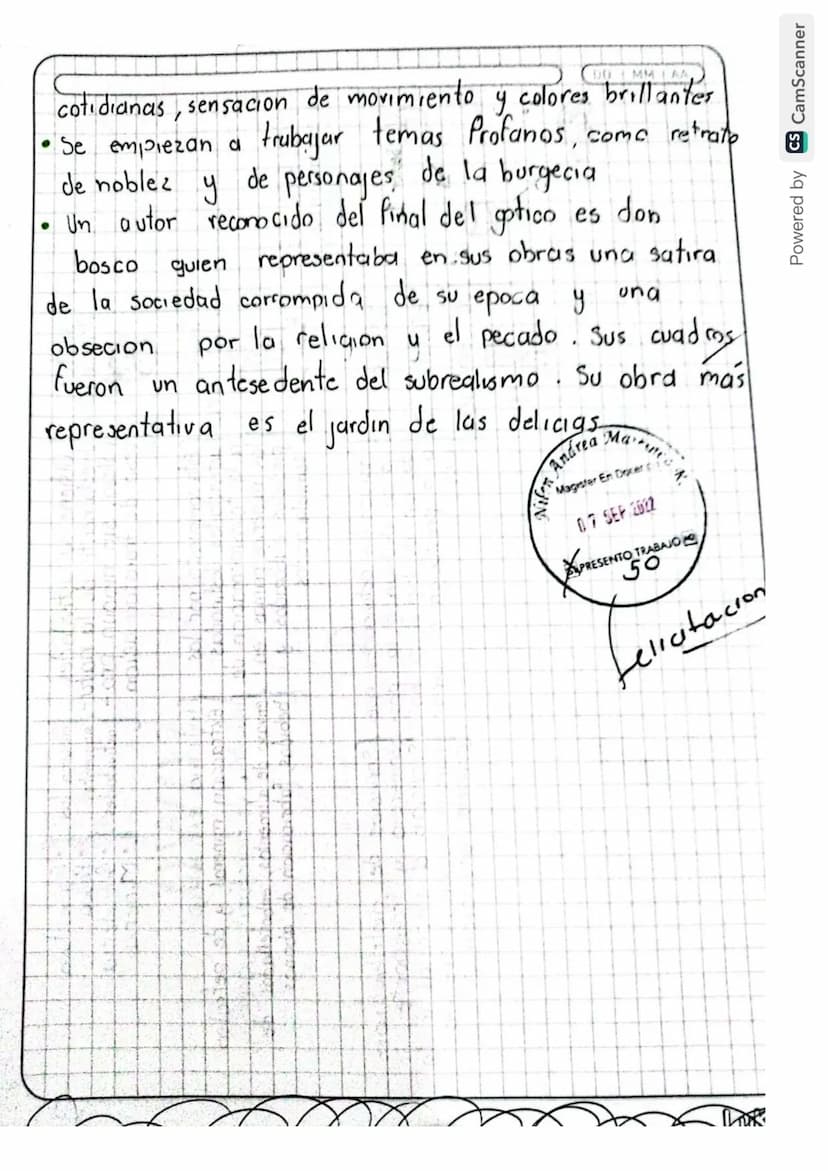 DD MM AA
cotidianas, sensacion de movimiento y colores brillantes
• Se empiezan a trabajar temas Profanos, como retrato
de noblez y de personajes de la burgecia
• Un autor reconocido del final del gotico es don
bosco quien representaba en sus obras una satira
de la sociedad corrompida de su epoca y una
obsecion por la religion y el pecado. Sus cuadros
fueron un antesedente del subrealismo. Su obra más
representativa es el jardin de las delicias
Andrea
Magister En
07 SEP 2022
PRESENTO TRABAJO
50
felicitacion
Powered by CS CamScanner